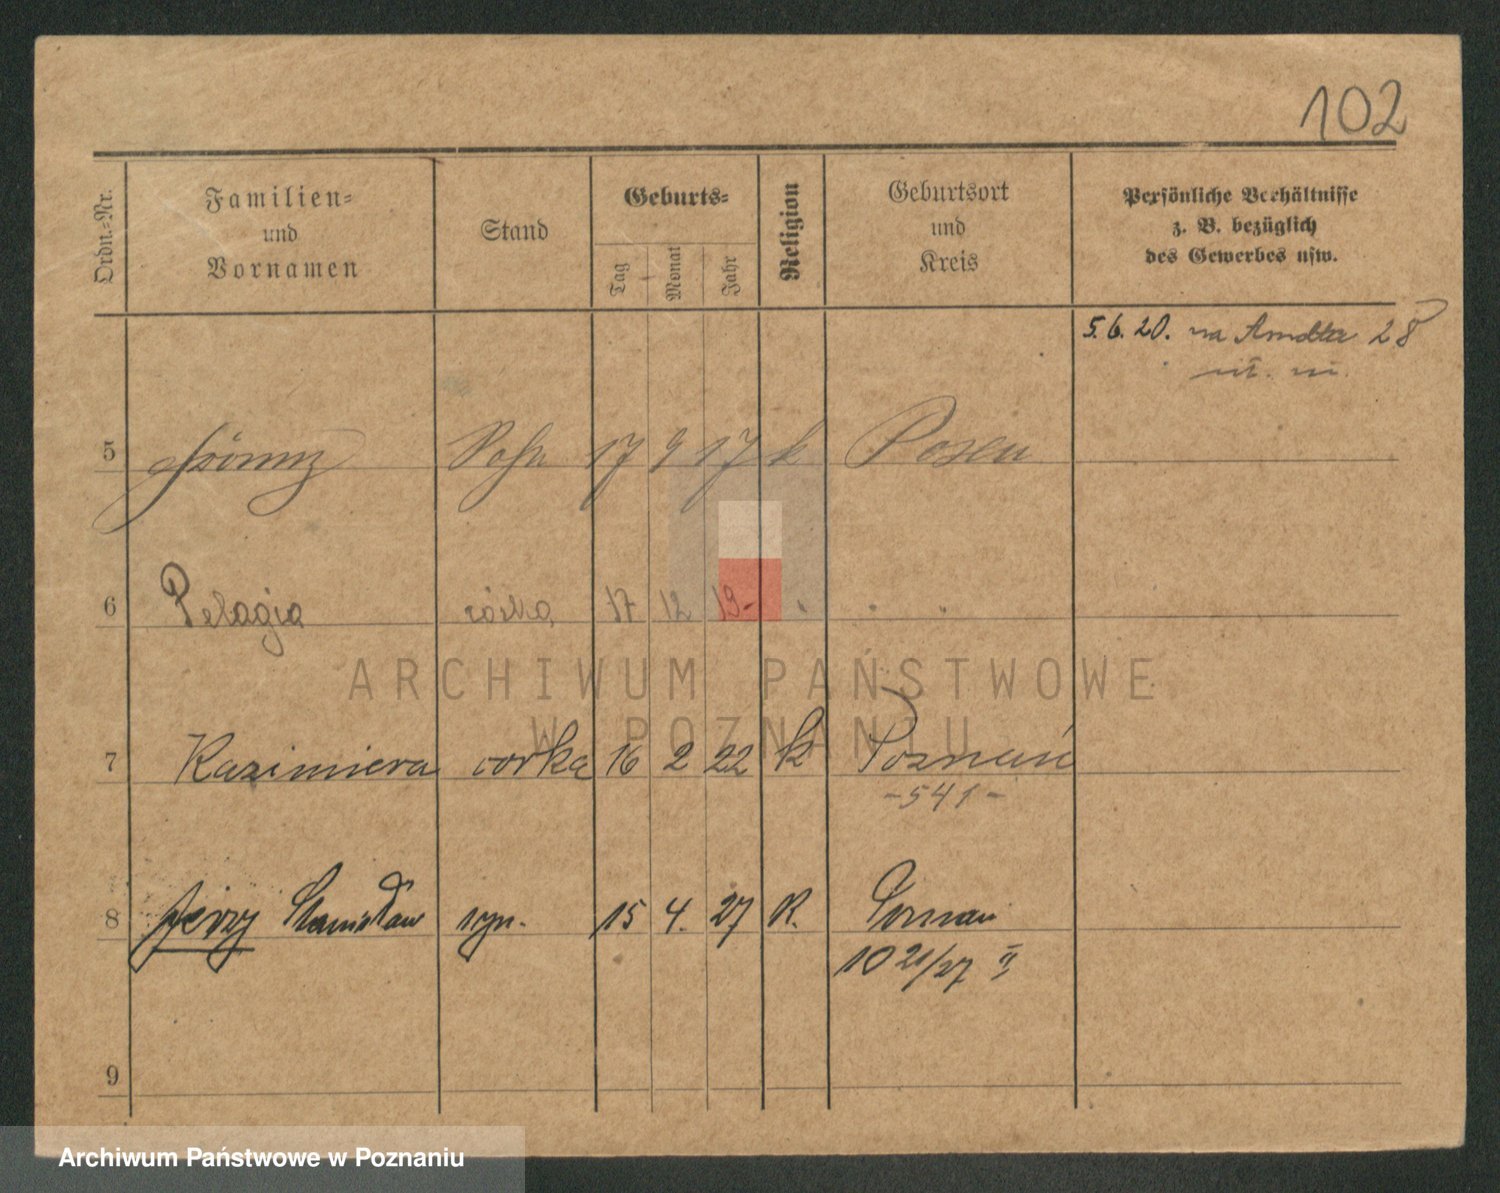 102
Ordn.-Nr.
Familien-
und
Vornamen
Stand
Geburts-
Tag
Monat
Jahr
Religion
Geburtsort
und
Kreis
Persönliche Verhältnisse
z. B. bezüglich
des Gewerbes usw.
5. 6. 20. na 28
5 Sohn 17 9 17 k Posen
6 Pelagja córka 17 12 19-
7 Kazimiera corka 16 2 22 k Poznań
-541-
8 Jerzy Stanisław syn. 15 4. 27 R. Poznań
1021/27 II
9
ARCHIWUM PAŃSTWOWE
W POZNANIU
Archiwum Państwowe w Poznaniu